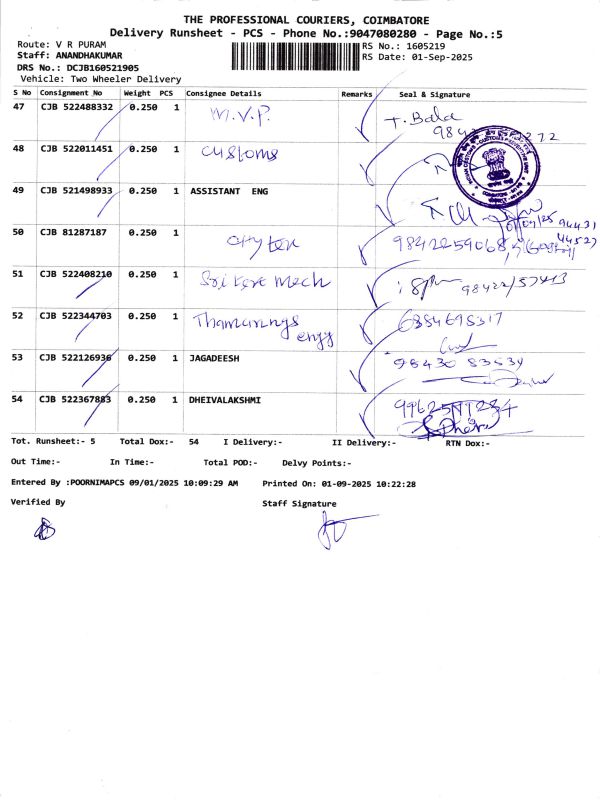 THE PROFESSIONAL COURIERS, COIMBATORE
Delivery Runsheet - PCS - Phone No.:9047080280 - Page No.:5
Route: V R PURAM
RS No.: 1605219
Staff: ANANDHAKUMAR
RS Date: 01-Sep-2025
DRS No.: DCJB160521905
Vehicle: Two Wheeler Delivery
S No Consignment No Weight PCS Consignee Details Remarks Seal & Signature
47 CJB 522488332 0.250 1 M.V.P. T. Bala
48 CJB 522011451 0.250 1 Customs
49 CJB 521498933 0.250 1 ASSISTANT ENG
50 CJB 81287187 0.250 1 9842259068
51 CJB 522408210 0.250 1 Mech 98422/57413
52 CJB 522344703 0.250 1 engg
53 CJB 522126936 0.250 1 JAGADEESH 98430 83534
54 CJB 522367883 0.250 1 DHEIVALAKSHMI
Tot. Runsheet:- 5 Total Dox:- 54 I Delivery:- II Delivery:- RTN Dox:-
Out Time:- In Time:- Total POD:- Delvy Points:-
Entered By :POORNIMAPCS 09/01/2025 10:09:29 AM Printed On: 01-09-2025 10:22:28
Verified By Staff Signature